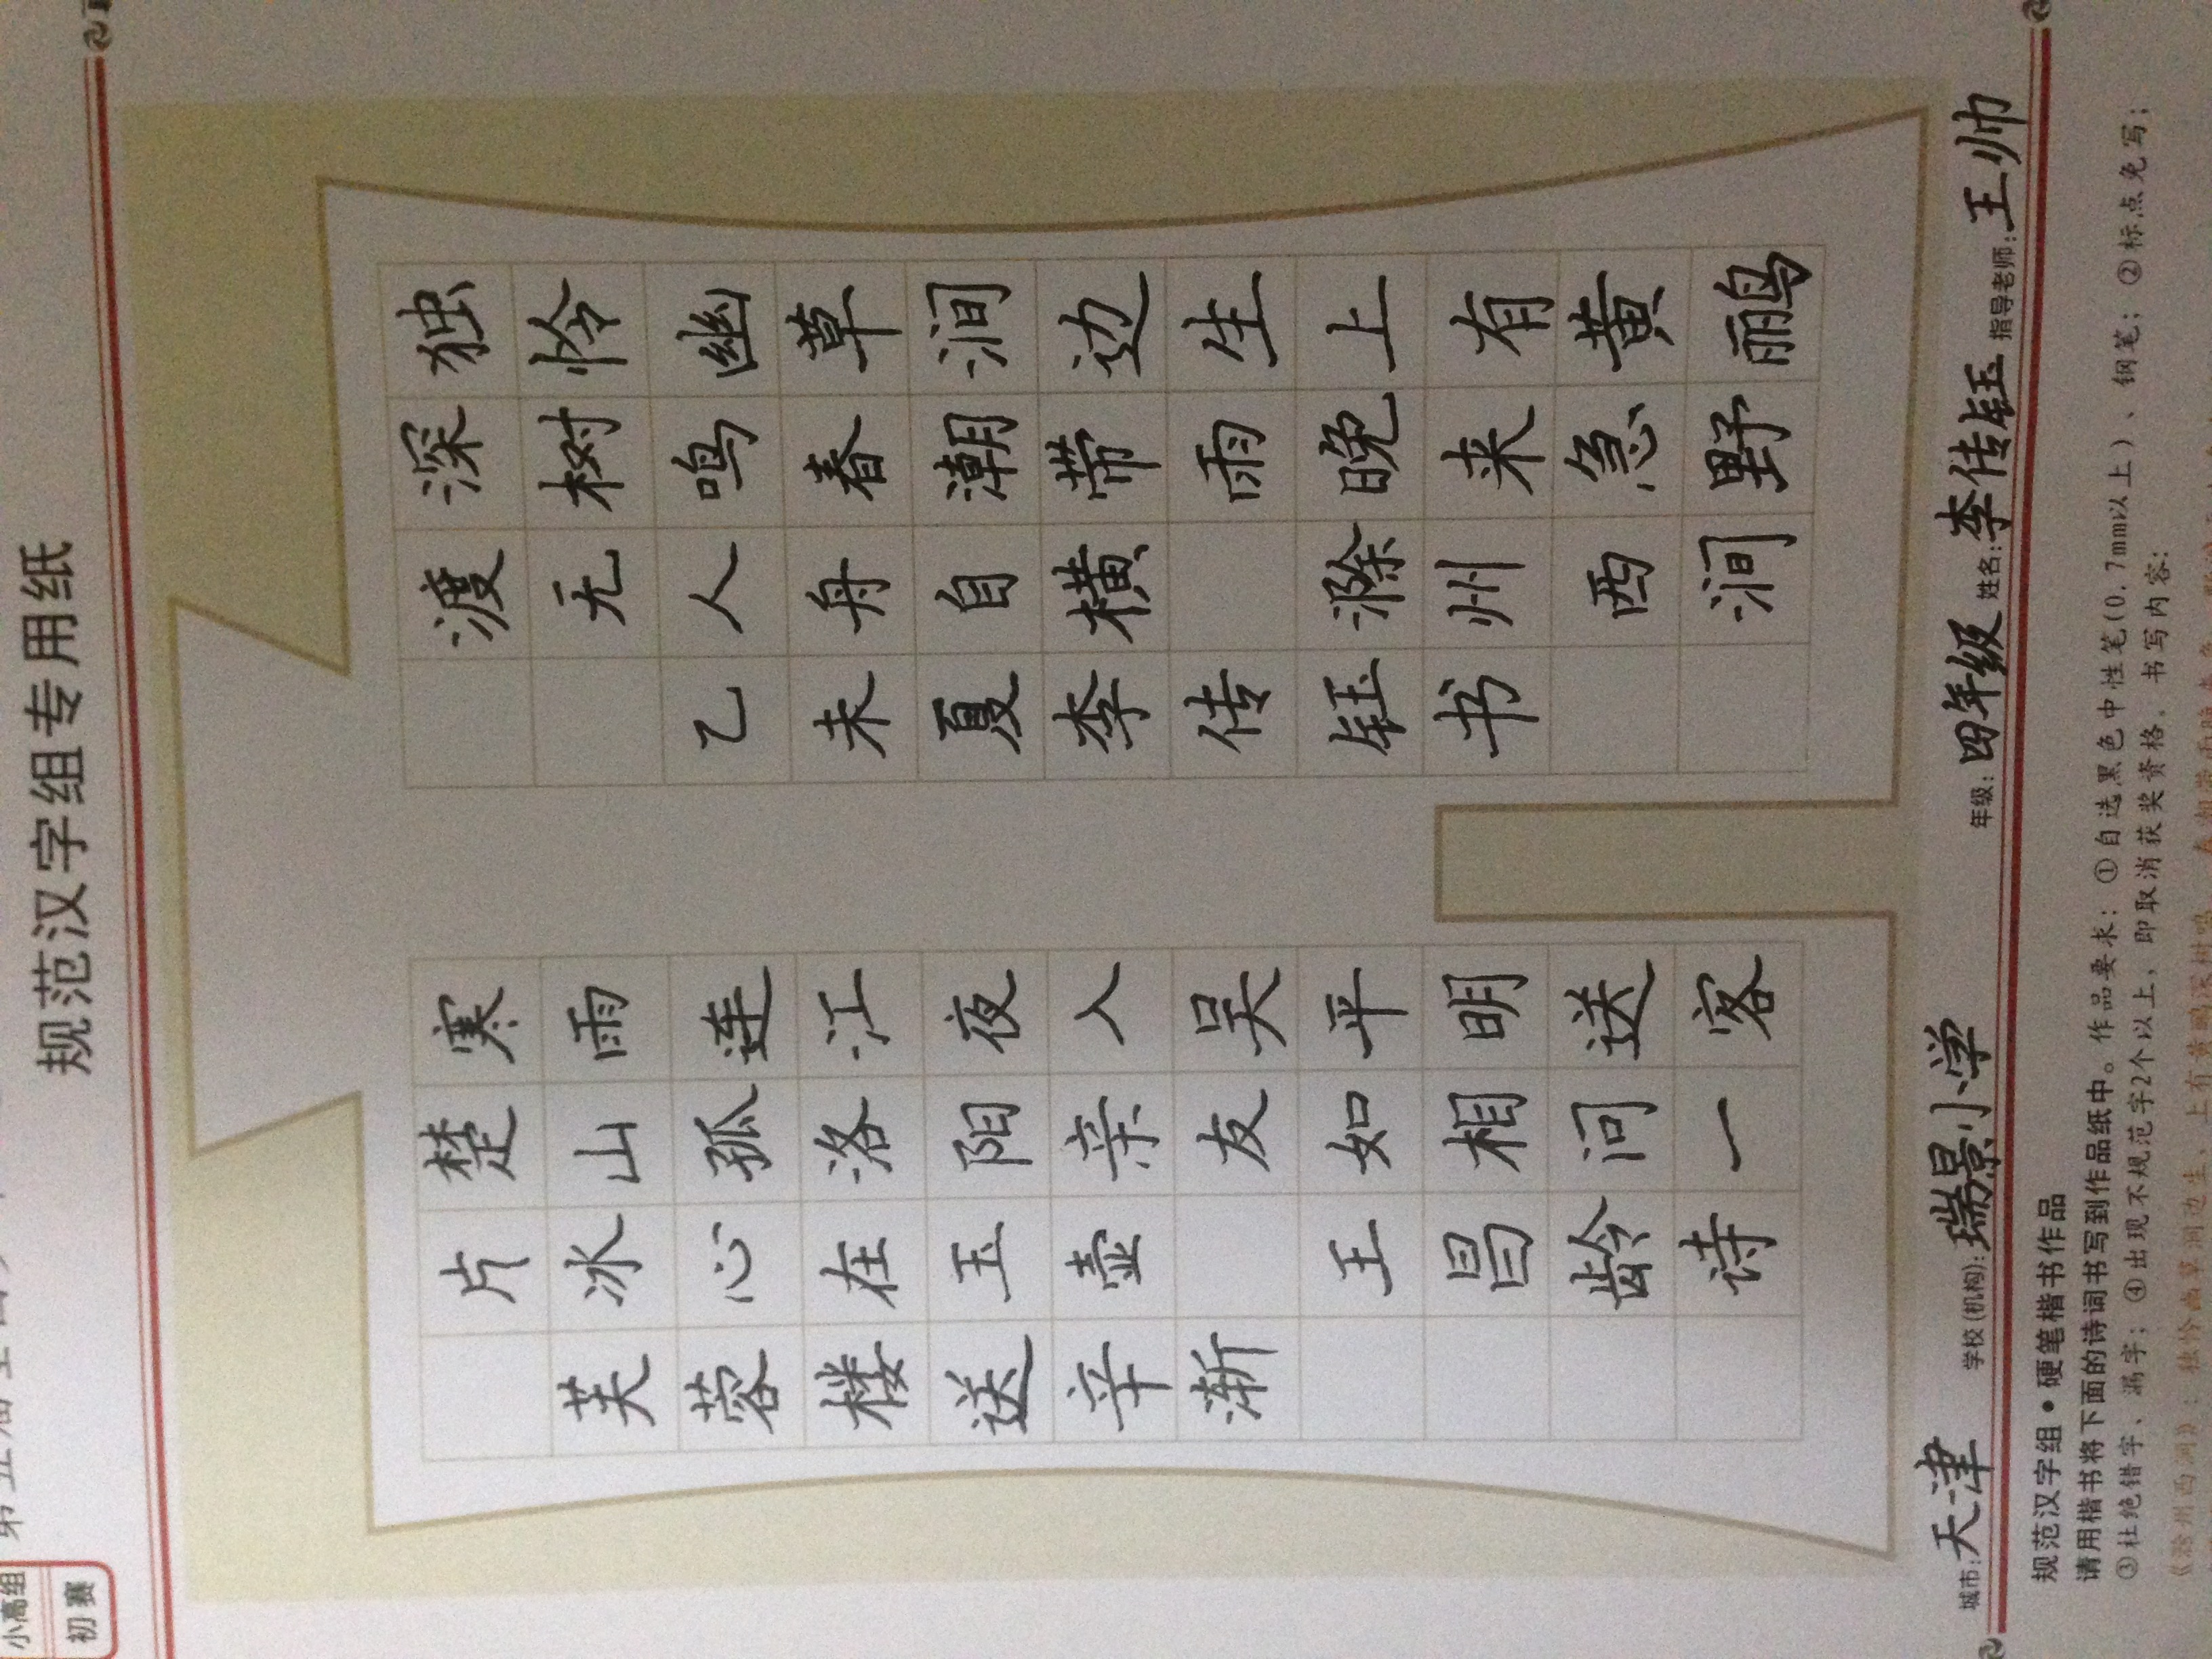 小高组
初赛
规范汉字组专用纸
独怜幽草涧边生上有黄鹂
深树鸣春潮带雨晚来急野
渡无人舟自横 滁州西涧
乙未夏李传钰书
寒雨连江夜入吴平明送客
楚山孤洛阳亲友如相问一
片冰心在玉壶 王昌龄诗
芙蓉楼送辛渐
城市:天津 学校(机构):瑞景小学 年级:四年级 姓名:李传钰 指导老师:王帅
规范汉字组•硬笔楷书作品
请用楷书将下面的诗词书写到作品纸中。作品要求：①自选黑色中性笔(0.7mm以上)、钢笔；②标点免写；
③杜绝错字、漏字；④出现不规范字2个以上，即取消获奖资格。书写内容：
《滁州西涧》：独怜幽草涧边生，上有黄鹂深树鸣。